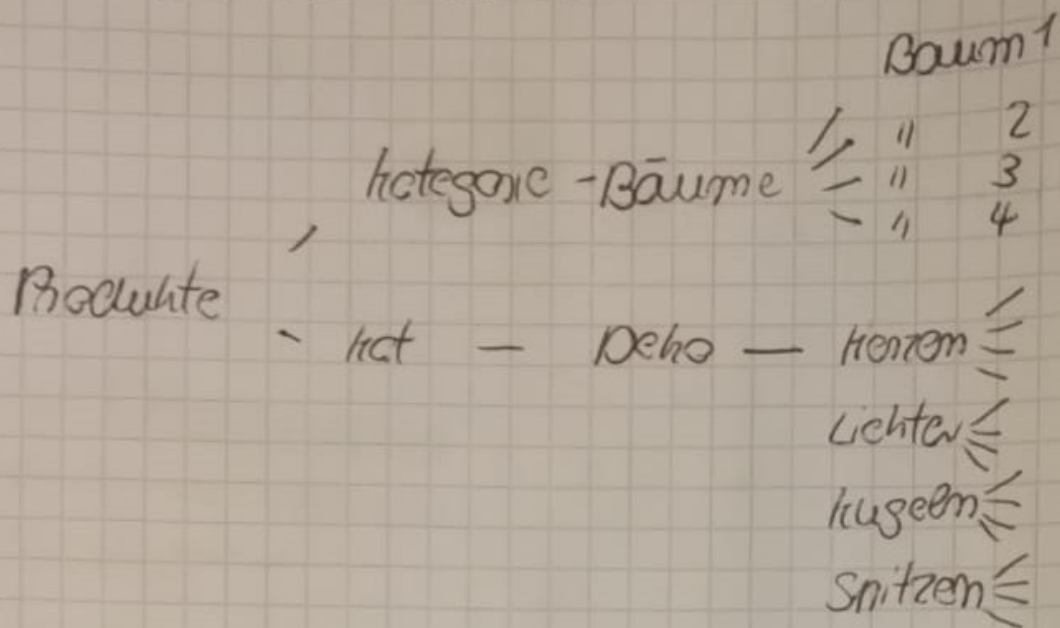 Baum 1
" 2
Kategorie - Bäume " 3
" 4
Produkte
Kat - Deko - Kerzen
Lichter
Kugeln
Spitzen